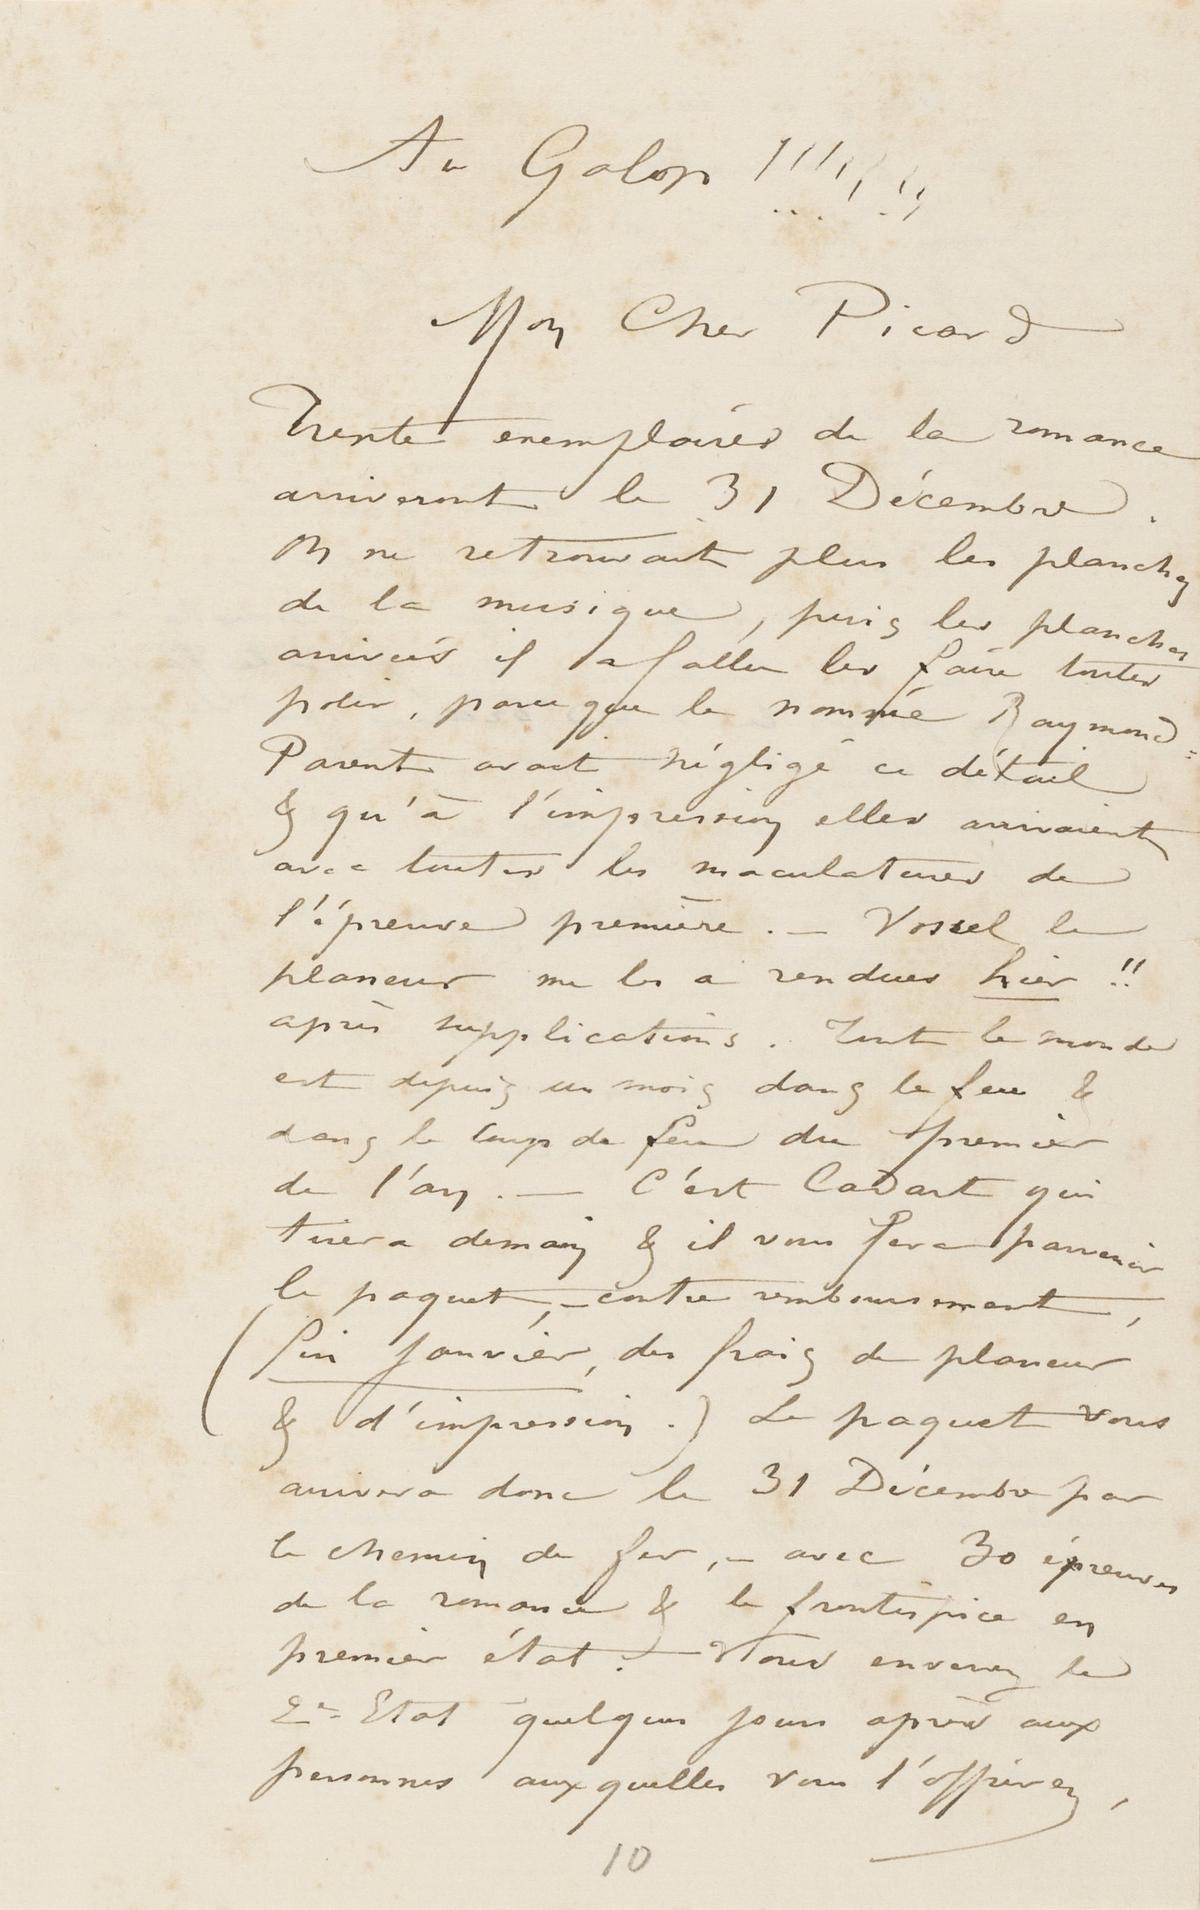 Au Galop !!!!!!!
Mon Cher Picard
Trente exemplaires de la romance
arriveront le 31 Décembre.
On ne retrouvait plus les planches
de la musique, puis les planches
arrivées il a fallu les faire toutes
polir, parce que le nommé Raymond=
Parent avait négligé ce détail
& qu'à l'impression elles arrivaient
avec toutes les maculatures de
l'épreuve première. — Vossel le
planeur me les a rendues hier !!
après supplications. Tout le monde
est depuis un mois dans le feu &
dans le coup de feu du premier
de l'an. — C'est Cadart qui
tirera demain & il vous fera parvenir
le paquet, – contre remboursement,
(fin janvier, des frais de planeur
& d'impression.) Le paquet vous
arrivera donc le 31 Décembre par
le chemin de fer, – avec 30 épreuves
de la romance & le frontispice en
premier état. – Vous enverrez le
2me Etat quelques jours après aux
personnes auxquelles vous l'offrirez,
10